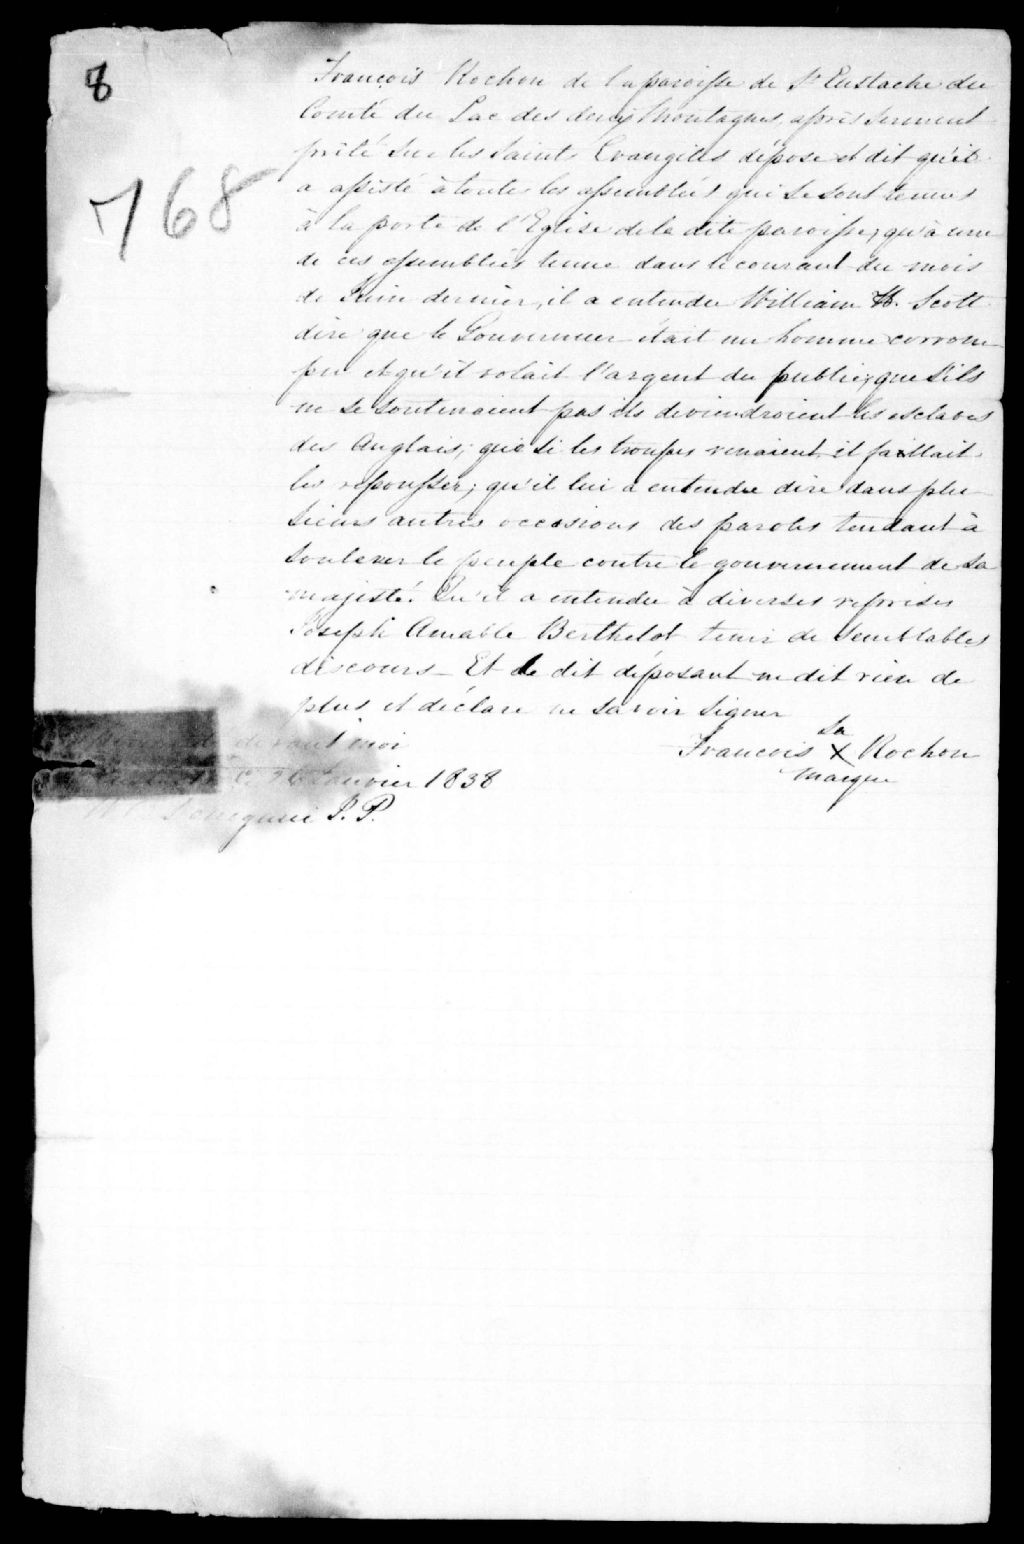 8
768
François Rochon de la paroisse de St Eustache du
Comté du Lac des deux Montagnes, après serment
prêté sur les Saints Evangiles dépose et dit qu'il
a assisté à toutes les assemblées qui se sont tenues
à la porte de l'Eglise de la dite paroisse, qu'à une
de ces assemblées tenue dans le courant du mois
de Juin dernier, il a entendu William H. Scott
dire que le Gouverneur était un homme corrom-
pu et qu'il volait l'argent du public, que s'ils
ne se soutenaient pas ils deviendroient les esclaves
des Anglais; que si les troupes venaient il faillait
les repousser; qu'il lui a entendu dire dans plu-
sieurs autres occasions des paroles tendant à
soulever le peuple contre le gouvernement de sa
majesté. Qu'il a entendu à diverses reprises
Joseph Amable Berthelot tenir de semblables
discours - Et le dit déposant ne dit rien de
plus et déclare ne savoir signer
François X Rochon
sa
marque
devant moi
ce 26 Janvier 1838
J. P.